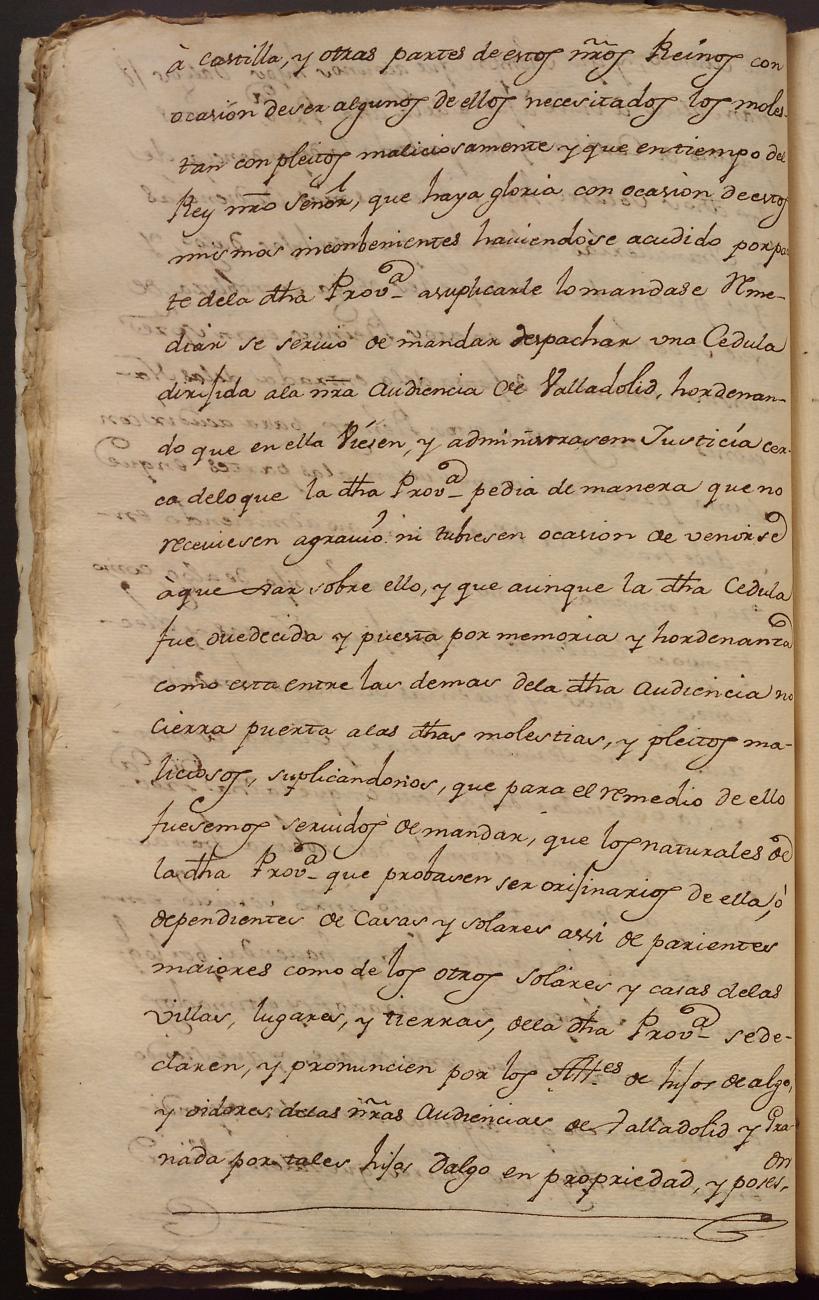 à Castilla, y otras partes de estos nrõs Reinos con
ocasion de ser algunos de ellos necesitados los moles-
tan con pleitos maliciosamente y que en tiempo del
Rey nrõ Señor, que haya gloria con ocasion de estos
mismos inconbenientes haviendose acudido por par
te dela dha Prov.ª a suplicarle lo mandase Reme-
diar se servio de mandar despachar vna Cedula
dirijida ala nrã Audiencia de Valladolid, hordenan-
do que en ella Viesen, y administrasen Justicia cer-
ca delo que la dha Prov.ª pedia de manera que no
receviesen agravio ni tubiesen ocasion de venirse
à quexar sobre ello, y que aunque la dha Cedula
fue ovedecida y puesta por memoria y hordenanza
como esta entre las demas dela dha Audiencia no
cierra puerta alas dhas molestias, y pleitos ma-
liciosos, suplicandonos, que para el remedio de ello
fuesemos servidos de mandar, que los naturales de
la dha Prov.ª que probasen ser orijinarios de ella, ò
dependientes de Casas y solares assi de parientes
maiores como de los otros solares y casas delas
villas, lugares, y tierras, dela dha Prov.ª se de-
claren, y pronuncien por los Alld.es de hijos de algo,
y oidores delas nrãs Audiencias de Valladolid y Gra-
nada por tales hijos dalgo en propriedad, y poses.on